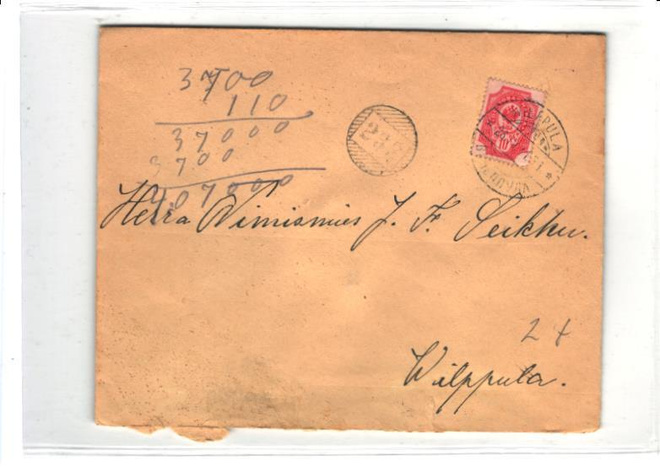 3700
110
37000
3700
407000
10
Herra Nimismies J. F. Leikku.
24
Wilppula.